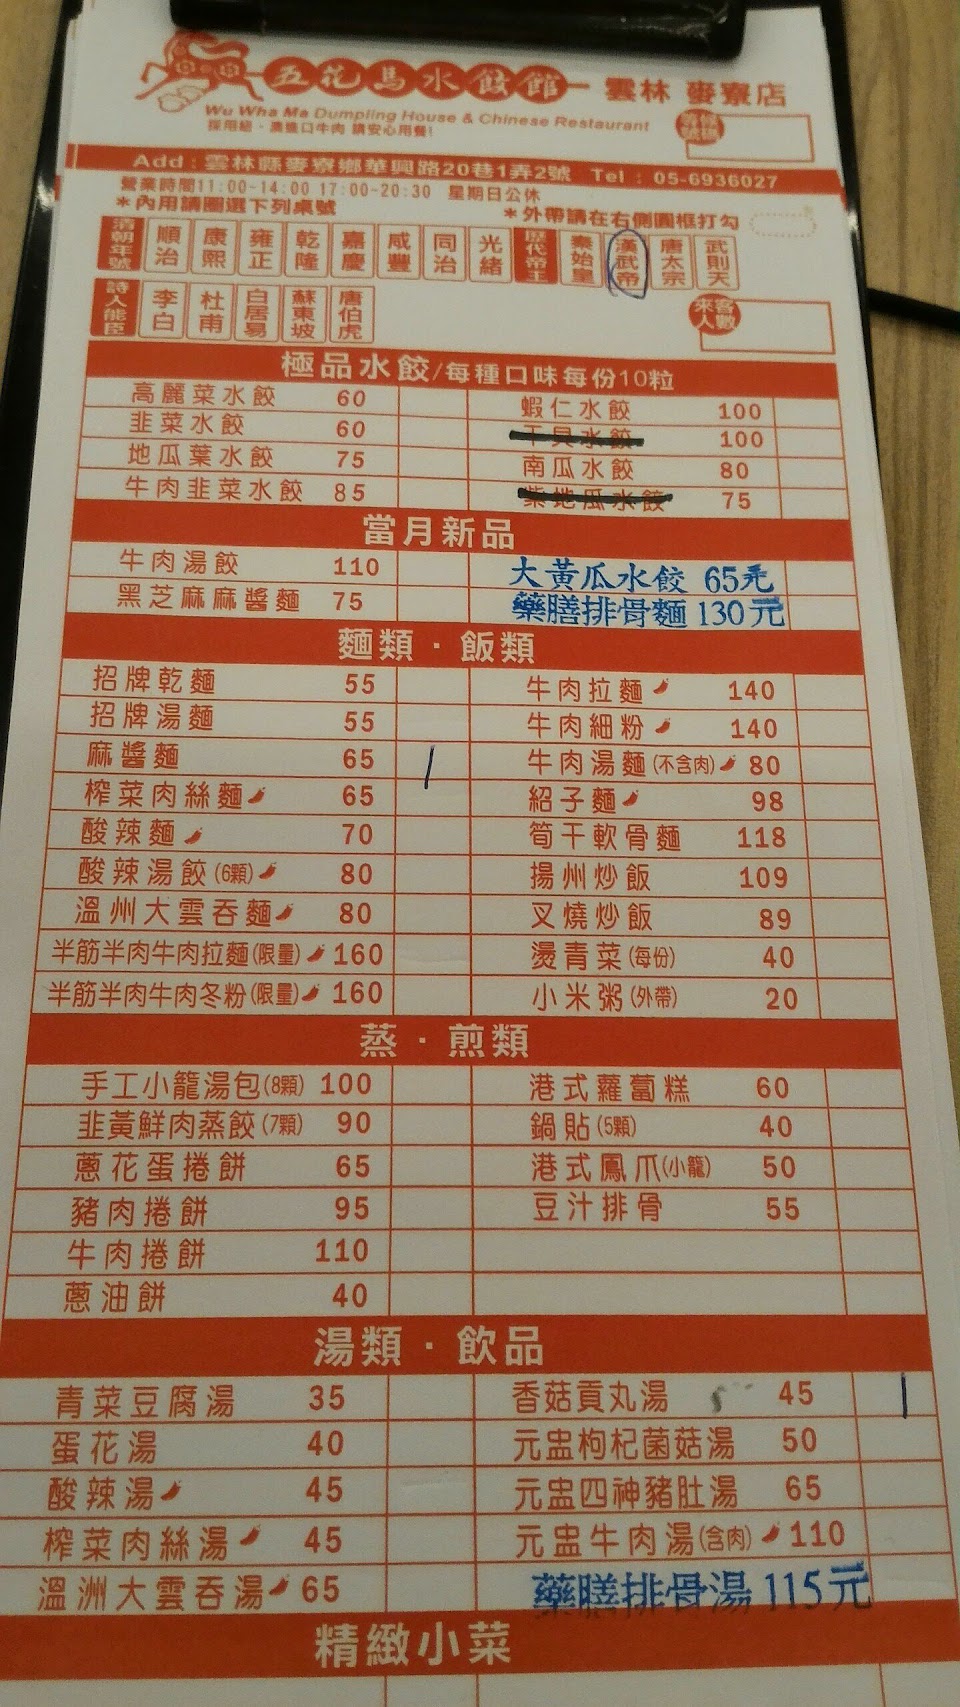 五花馬水餃館 雲林 麥寮店
Wu Wha Ma Dumpling House & Chinese Restaurant
採用紐、澳進口牛肉 請安心用餐!
等候號碼
Add : 雲林縣麥寮鄉華興路20巷1弄2號 Tel : 05-6936027
營業時間11:00-14:00 17:00-20:30 星期日公休
*內用請圈選下列桌號 *外帶請在右側圓框打勾
清朝年號 順治 康熙 雍正 乾隆 嘉慶 咸豐 同治 光緒 歷代帝王 秦始皇 漢武帝 唐太宗 武則天
詩人能臣 李白 杜甫 白居易 蘇東坡 唐伯虎 來客人數
極品水餃/每種口味每份10粒
高麗菜水餃 60 蝦仁水餃 100
韭菜水餃 60 干貝水餃 100
地瓜葉水餃 75 南瓜水餃 80
牛肉韭菜水餃 85 紫地瓜水餃 75
當月新品
牛肉湯餃 110 大黃瓜水餃 65元
黑芝麻麻醬麵 75 藥膳排骨麵 130元
麵類．飯類
招牌乾麵 55 牛肉拉麵 140
招牌湯麵 55 牛肉細粉 140
麻醬麵 65 牛肉湯麵(不含肉) 80
榨菜肉絲麵 65 紹子麵 98
酸辣麵 70 筍干軟骨麵 118
酸辣湯餃(6顆) 80 揚州炒飯 109
溫州大雲吞麵 80 叉燒炒飯 89
半筋半肉牛肉拉麵(限量) 160 燙青菜(每份) 40
半筋半肉牛肉冬粉(限量) 160 小米粥(外帶) 20
蒸．煎類
手工小籠湯包(8顆) 100 港式蘿蔔糕 60
韭黃鮮肉蒸餃(7顆) 90 鍋貼(5顆) 40
蔥花蛋捲餅 65 港式鳳爪(小籠) 50
豬肉捲餅 95 豆汁排骨 55
牛肉捲餅 110
蔥油餅 40
湯類．飲品
青菜豆腐湯 35 香菇貢丸湯 45
蛋花湯 40 元盅枸杞菌菇湯 50
酸辣湯 45 元盅四神豬肚湯 65
榨菜肉絲湯 45 元盅牛肉湯(含肉) 110
溫洲大雲吞湯 65 藥膳排骨湯 115元
精緻小菜